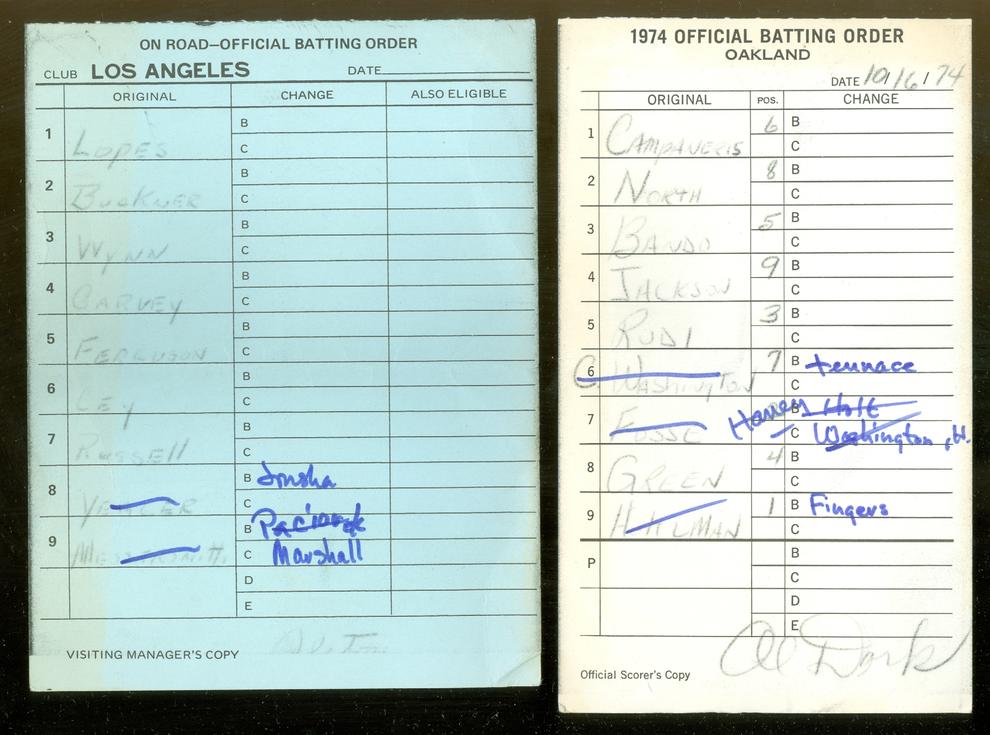 ON ROAD—OFFICIAL BATTING ORDER
CLUB LOS ANGELES DATE
ORIGINAL CHANGE ALSO ELIGIBLE
1 LOPES B
C
2 BUCKNER B
C
3 WYNN B
C
4 GARVEY B
C
5 FERGUSON B
C
6 CEY B
C
7 RUSSELL B
C
8 YEAGER B Joshua
C
9 MESSERSMITH B Paciorek
C Marshall
D
E
VISITING MANAGER'S COPY
1974 OFFICIAL BATTING ORDER
OAKLAND
DATE 10/16/74
ORIGINAL POS. CHANGE
1 CAMPANERIS 6 B
C
2 NORTH 8 B
C
3 BANDO 5 B
C
4 JACKSON 9 B
C
5 RUDI 3 B
C
6 C. WASHINGTON 7 B tennace
C
7 FOSSE B Haney Holt
C Washington, H.
8 GREEN 4 B
C
9 HOLTZMAN 1 B Fingers
C
P B
C
D
E
Al Dark
Official Scorer's Copy